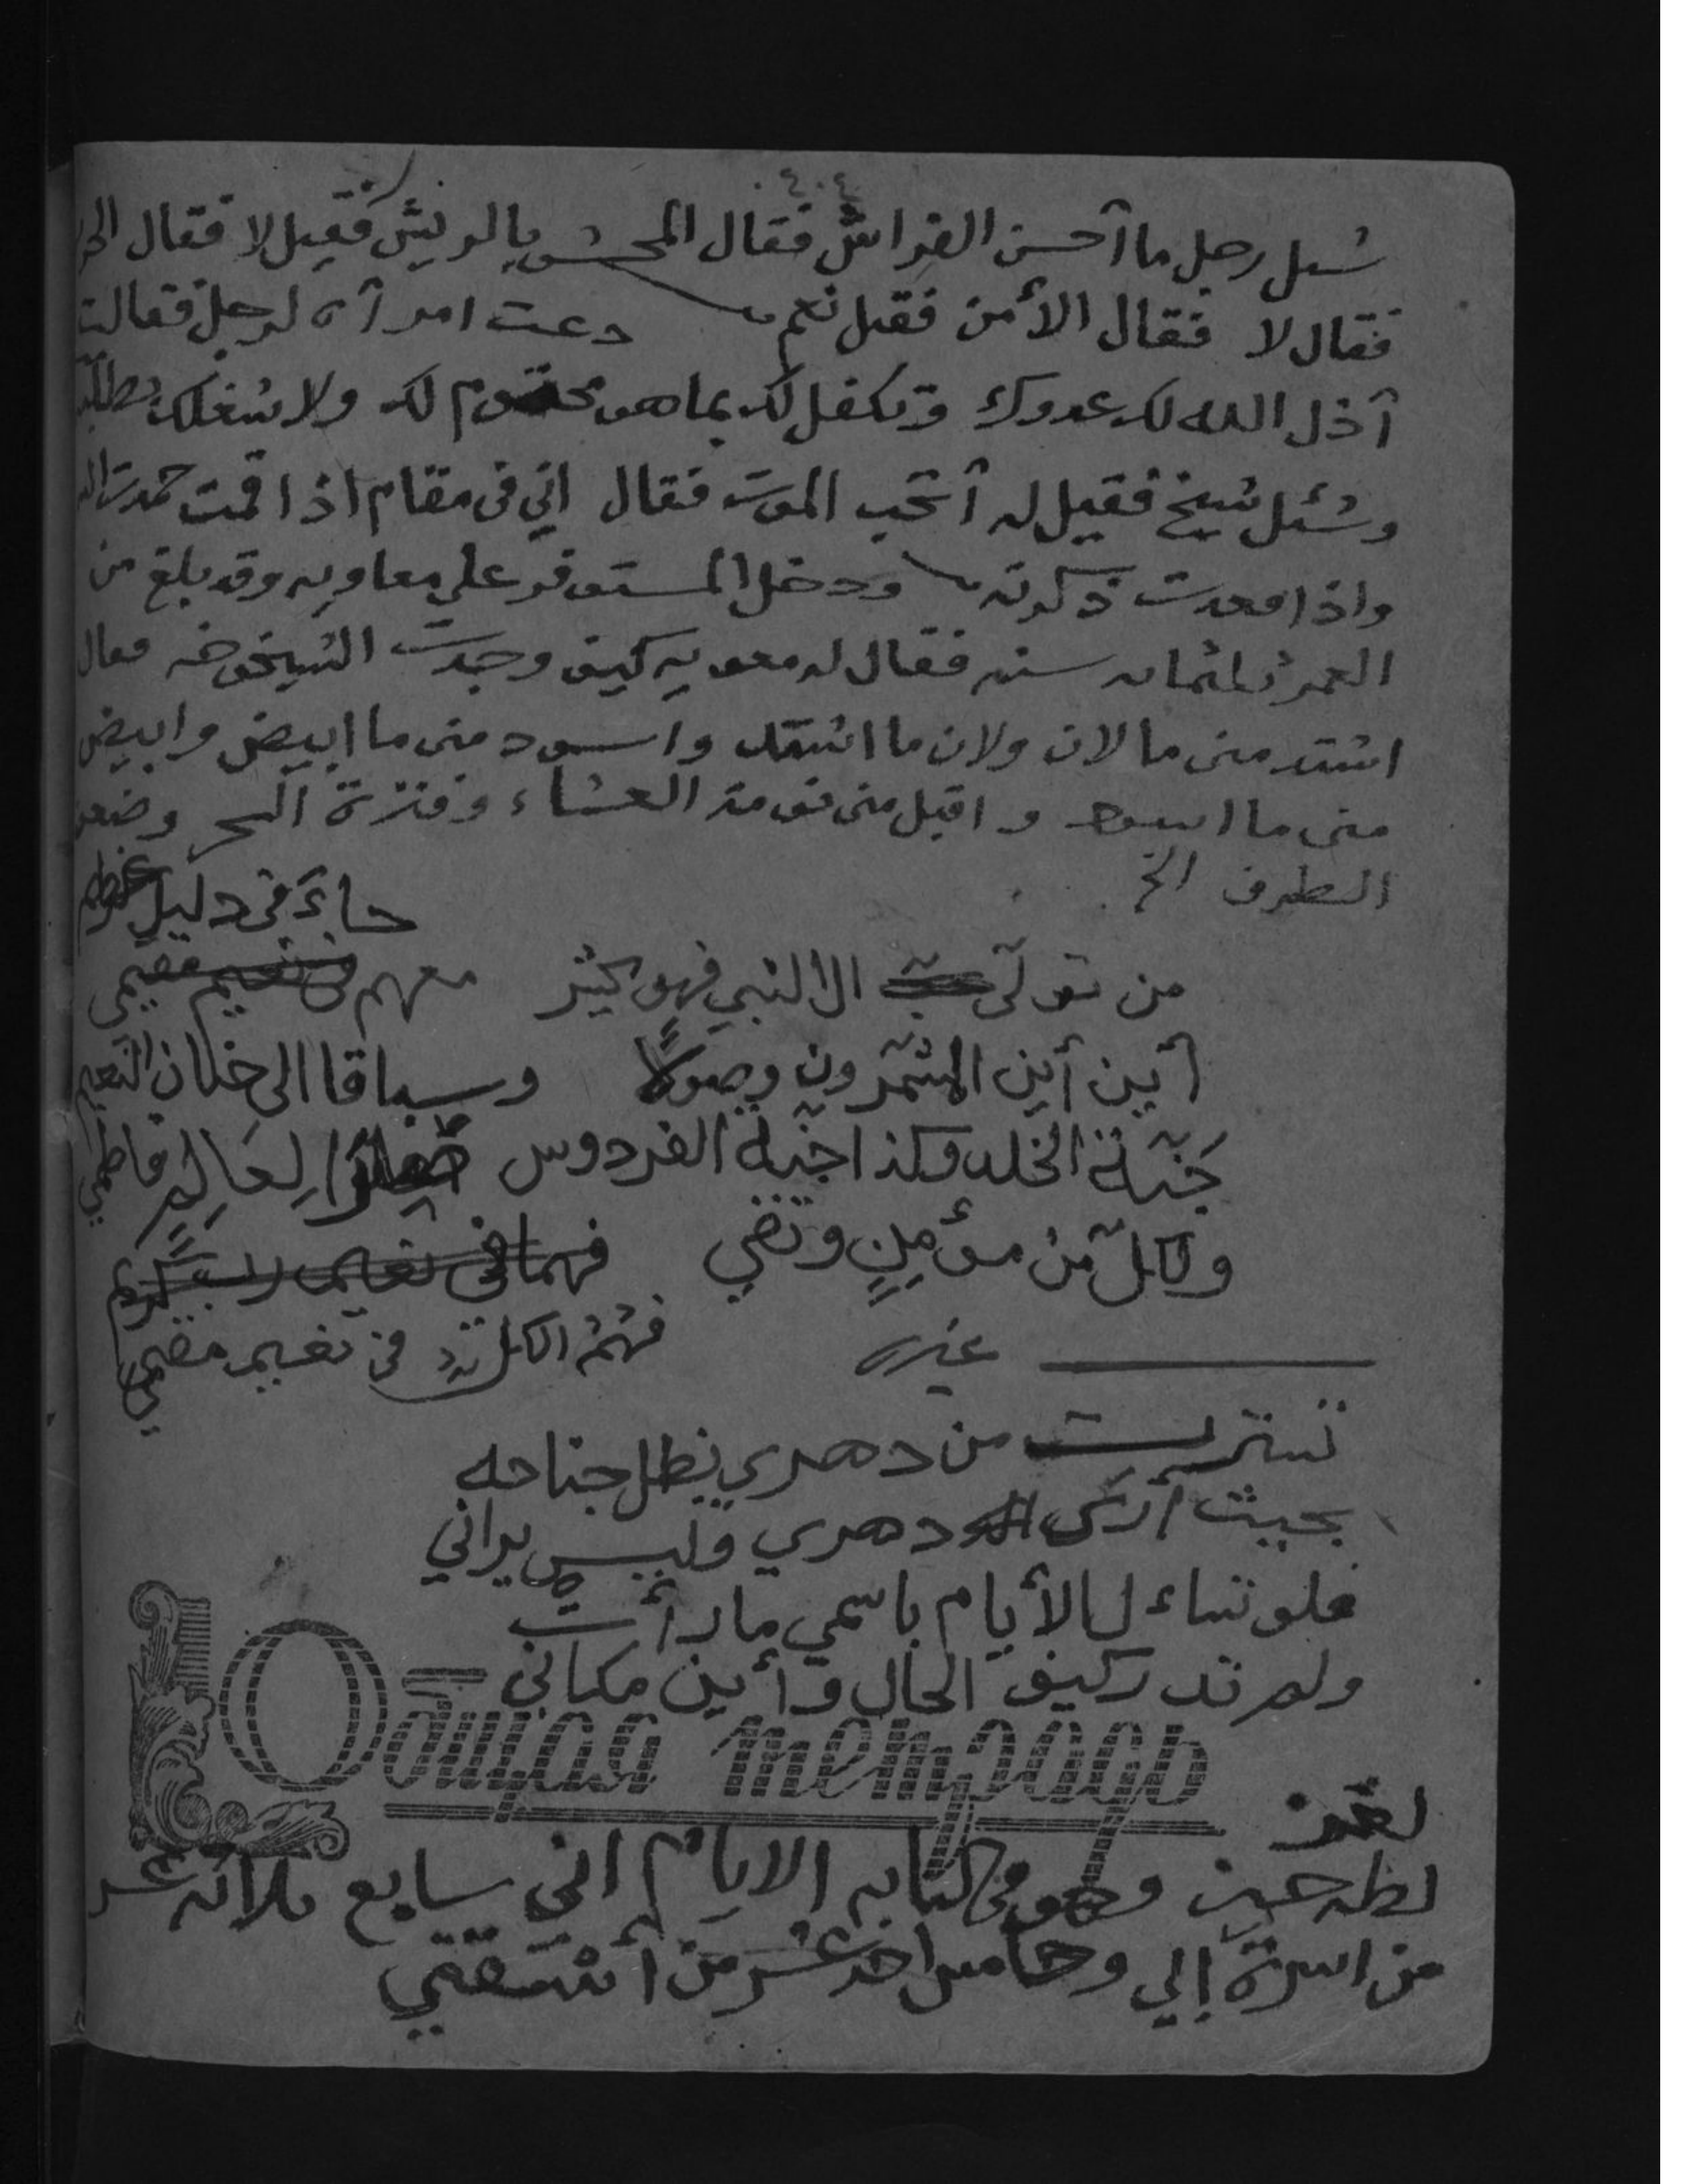 ٤٠٤
سُئل رجل ما أحسن الفراش فقال المحشو بالريش فقيل لا فقال
فقال لا فقال الأمن فقيل نعم دعت امرأة لرجل فقالت
أذل الله لك عدوك وتكفل لك بما هو محتوم لك ولا شغلك
وسُئل شيخ فقيل له أتحب الموت فقال اني في مقام اذا قمت حمدت
واذا قعدت ذكرته ودخل المستوفر على معاويه وقد بلغ من
العمر ثلثمائه سنه فقال له معويه كيف وجدت الشيخوخه فقال
اشتد منى ما لان ولان ما اشتد واسود منى ما ابيض وابيض
منى ما اسود واقبل منى نومة العشاء وفترة السحر وضعف
الطرف الخ
جاءَ في دليل
من تولّى الا النبي فهو يحشر معهم في نعيم مقيمي
أين أين المشمرون وصولاً وسباقا الى جنان النعيم
جَنّة الخلد وكذا جنّة الفردوس لِعَالِمٍ فاطمي
ولكلّ من مؤمِنٍ وتقي فهما في نعيم كريم
غيره فهُمُ الكل في نعيم مقيمي
تسترت من دهري بظل جناحه
بحيث أرى دهري وليس يراني
فلو تساءل الأيام باسمي ما درأت
ولم تدر كيف الحال وأين مكاني
Общая тетрадь
لغز
لطه حسين وهو في كتابه الايام اني سابع ثلاثه عشر
من اسرة إلي وخامس احد عشر من أشقتي